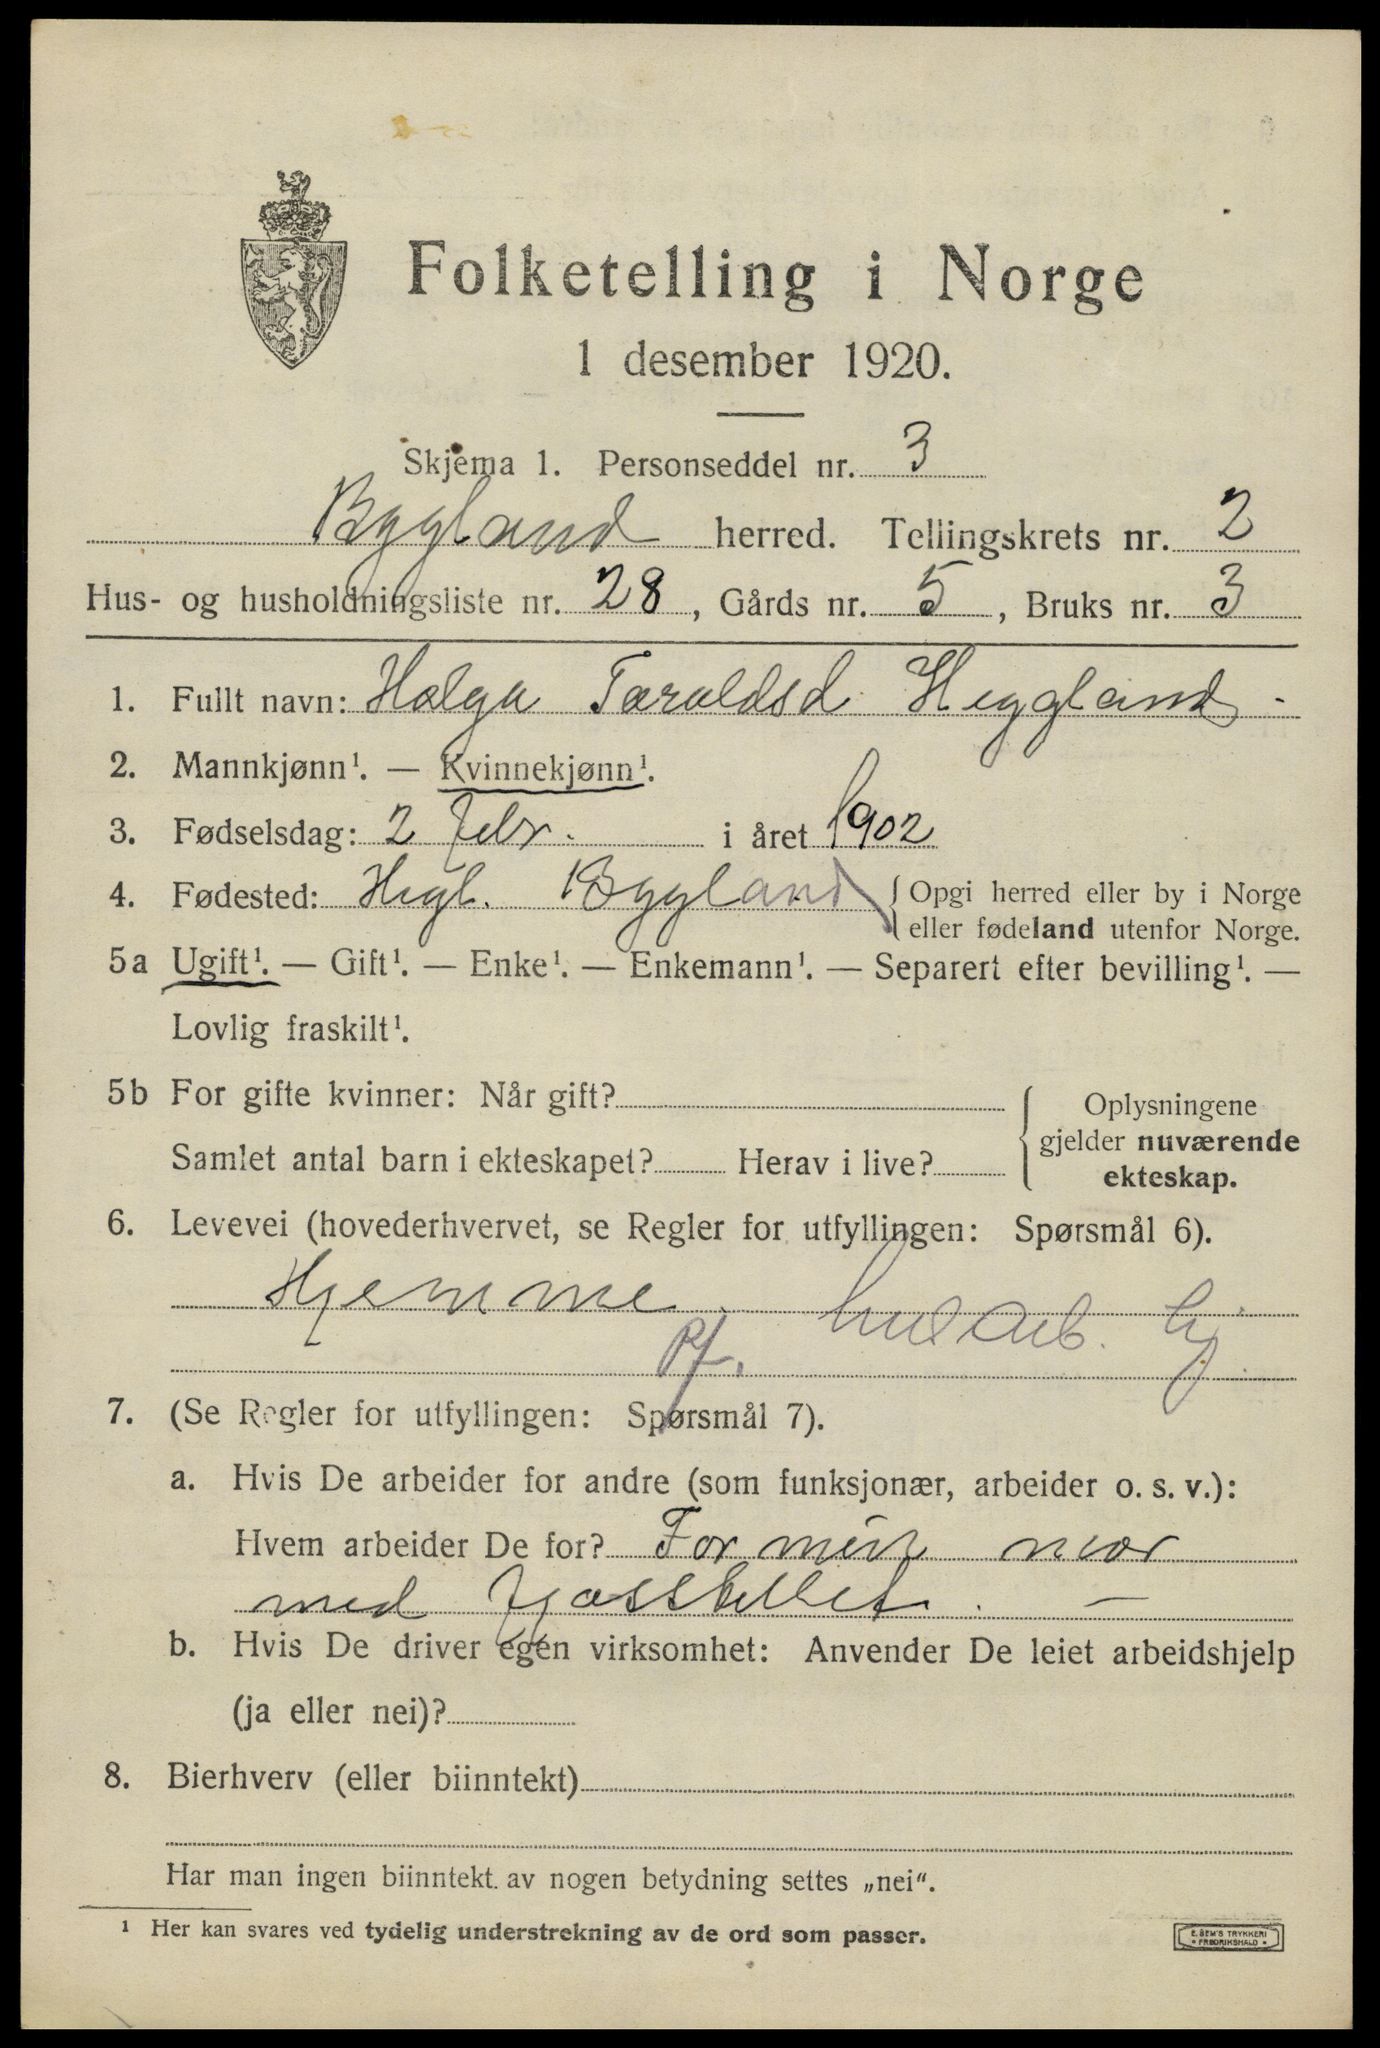 Folketelling i Norge
1 desember 1920.
Skjema 1. Personseddel nr. 3
Bygland herred. Tellingskrets nr. 2
Hus- og husholdningsliste nr. 28, Gårds nr. 5, Bruks nr. 3
1. Fullt navn: Helga Taraldsd Heggland
2. Mannkjønn¹. — Kvinnekjønn¹.
3. Fødselsdag: 2 febr. i året 1902
4. Fødested: Hegl. Bygland { Opgi herred eller by i Norge
eller fødeland utenfor Norge.
5a Ugift¹. — Gift¹. — Enke¹. — Enkemann¹. — Separert efter bevilling¹. —
Lovlig fraskilt¹.
5b For gifte kvinner: Når gift?
Samlet antal barn i ekteskapet? Herav i live?
Oplysningene
gjelder nuværende
ekteskap.
6. Levevei (hovederhvervet, se Regler for utfyllingen: Spørsmål 6).
Hjemme
7. (Se Regler for utfyllingen: Spørsmål 7).
a. Hvis De arbeider for andre (som funksjonær, arbeider o. s. v.):
Hvem arbeider De for? For min mor
med fjosstellet. —
b. Hvis De driver egen virksomhet: Anvender De leiet arbeidshjelp
(ja eller nei)?
8. Bierhverv (eller biinntekt)
Har man ingen biinntekt av nogen betydning settes „nei“.
¹ Her kan svares ved tydelig understrekning av de ord som passer.
E. SEM'S TRYKKERI
FREDRIKSHALD